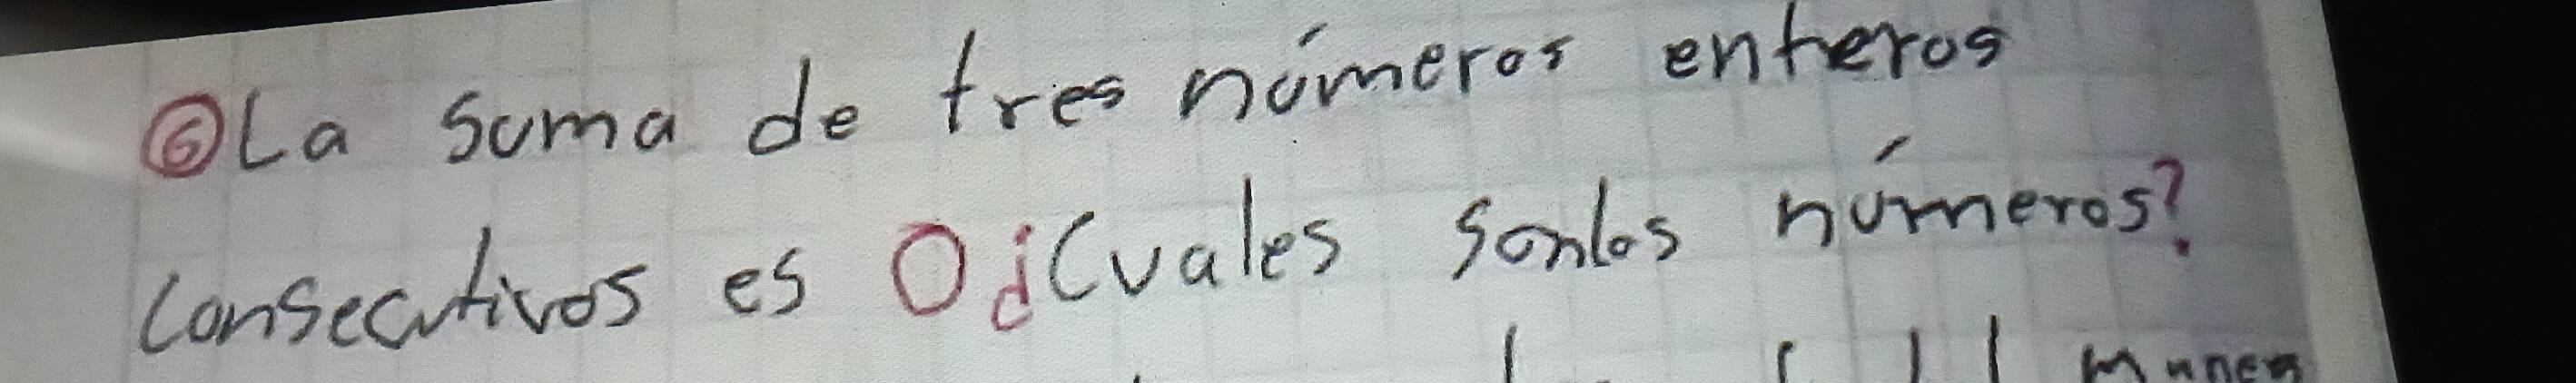 ⑥La suma de tres números enteros
consecutivos es 0 ¿Cuales son los números?